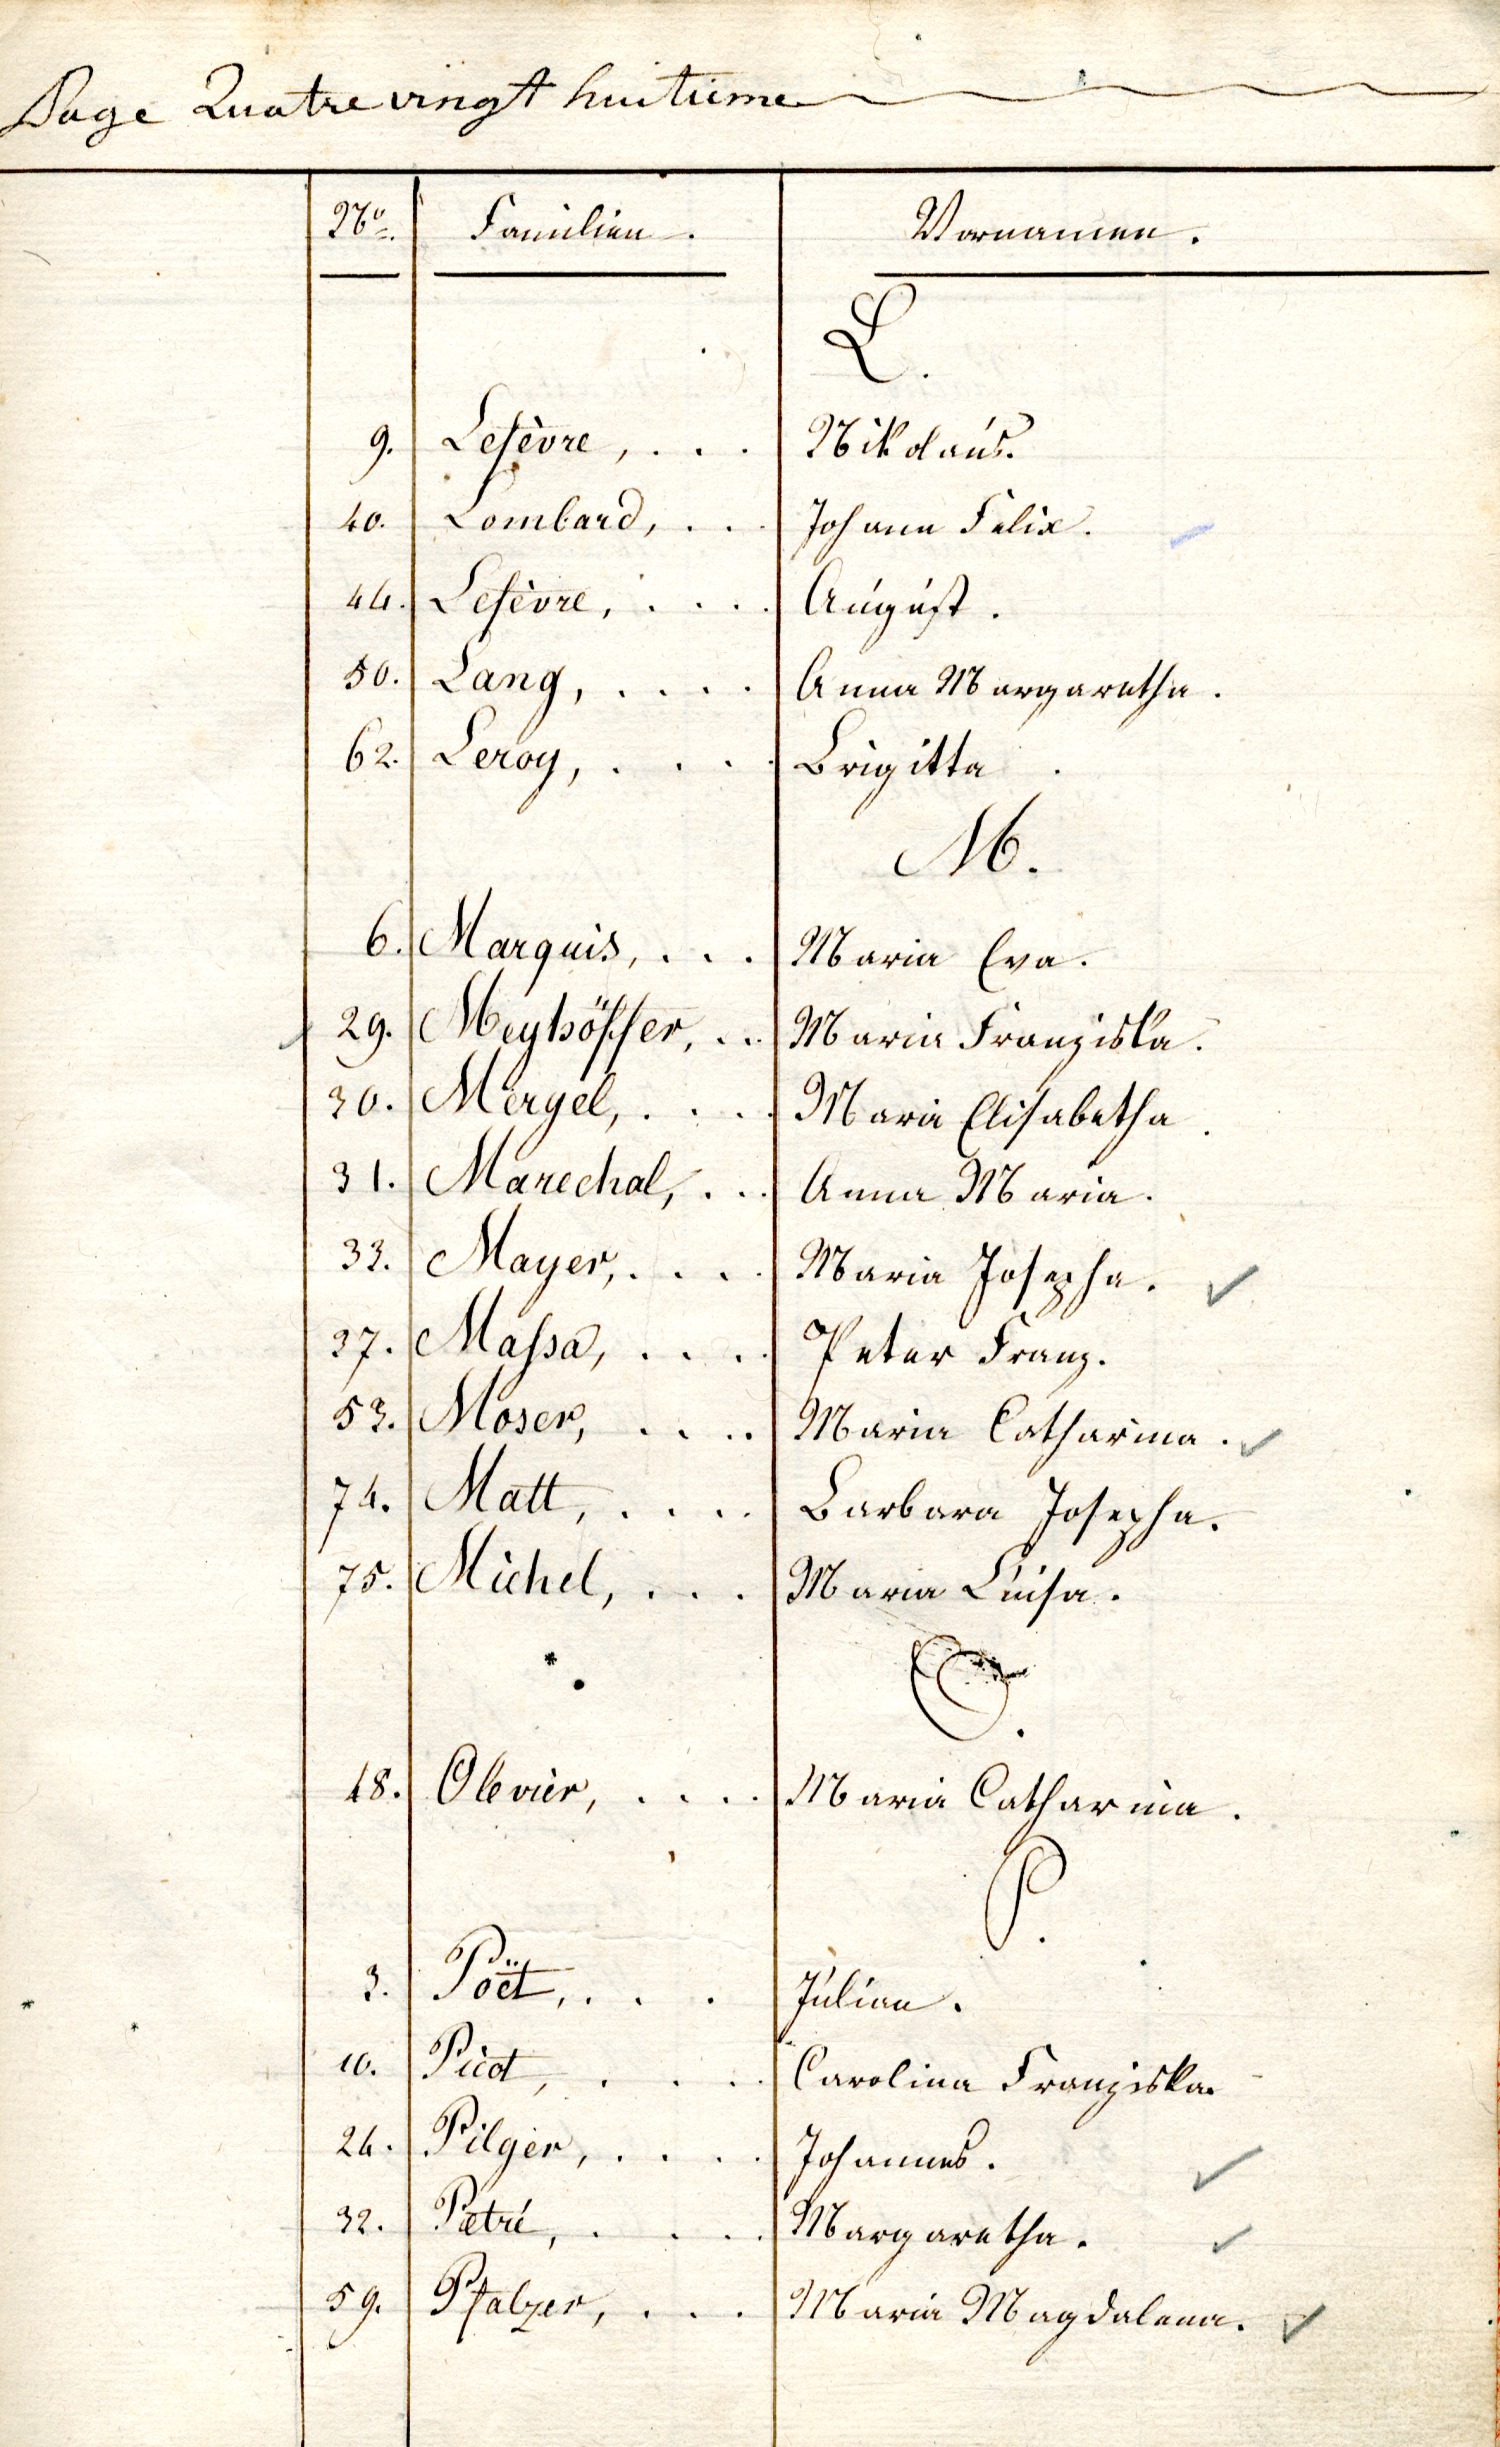 Page Quatre vingt huitieme
No. Familien. Vornamen.
L.
9. Lefèvre, . . . Nikolaus.
40. Lombard, . . . Johann Felix.
44. Lefèvre, . . . . August.
50. Lang, . . . . Anna Margaretha.
62. Leroy, . . . . Brigitta.
M.
6. Marquis, . . . Maria Eva.
29. Meyhöffer, . . Maria Franziska.
30. Mergel, . . . . Maria Elisabetha.
31. Marechal, . . . Anna Maria.
33. Mayer, . . . . Maria Josepha.
37. Maſsa, . . . . Peter Franz.
53. Moser, . . . . Maria Catharina.
74. Matt, . . . . Barbara Josepha.
75. Michel, . . . Maria Luisa.
O.
48. Olevier, . . . . Maria Catharina.
P.
3. Poët, . . . . Julian.
10. Picot, . . . . Carolina Franziska.
24. Pilger, . . . . Johannes.
32. Petré, . . . . Margaretha.
59. Pfalzer, . . . Maria Magdalena.